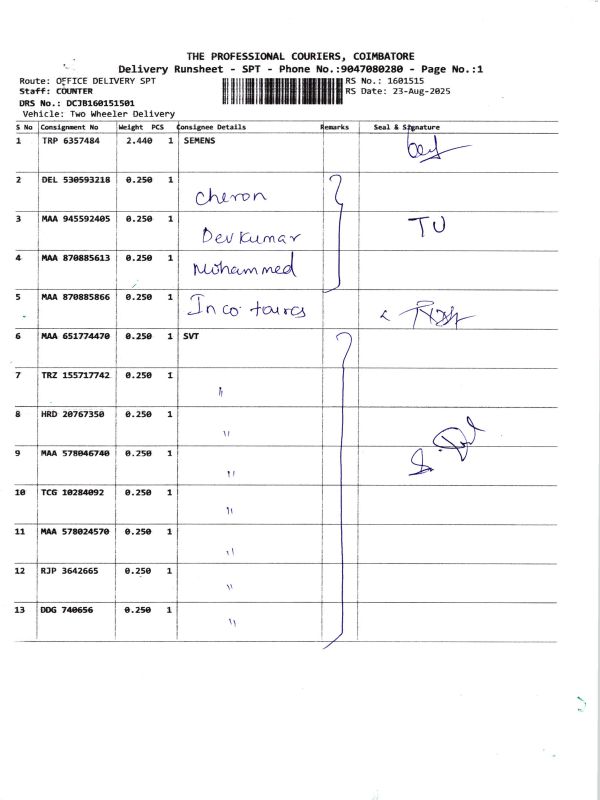 THE PROFESSIONAL COURIERS, COIMBATORE
Delivery Runsheet - SPT - Phone No.:9047080280 - Page No.:1
Route: OFFICE DELIVERY SPT RS No.: 1601515
Staff: COUNTER RS Date: 23-Aug-2025
DRS No.: DCJB160151501
Vehicle: Two Wheeler Delivery
S No Consignment No Weight PCS Consignee Details Remarks Seal & Signature
1 TRP 6357484 2.440 1 SEMENS
2 DEL 530593218 0.250 1 Cheron
3 MAA 945592405 0.250 1 Devkumar TU
4 MAA 870885613 0.250 1 Mohammed
5 MAA 870885866 0.250 1 Inco tours
6 MAA 651774470 0.250 1 SVT
7 TRZ 155717742 0.250 1 "
8 HRD 20767350 0.250 1 "
9 MAA 578046740 0.250 1 "
10 TCG 10284092 0.250 1 "
11 MAA 578024570 0.250 1 "
12 RJP 3642665 0.250 1 "
13 DDG 740656 0.250 1 "